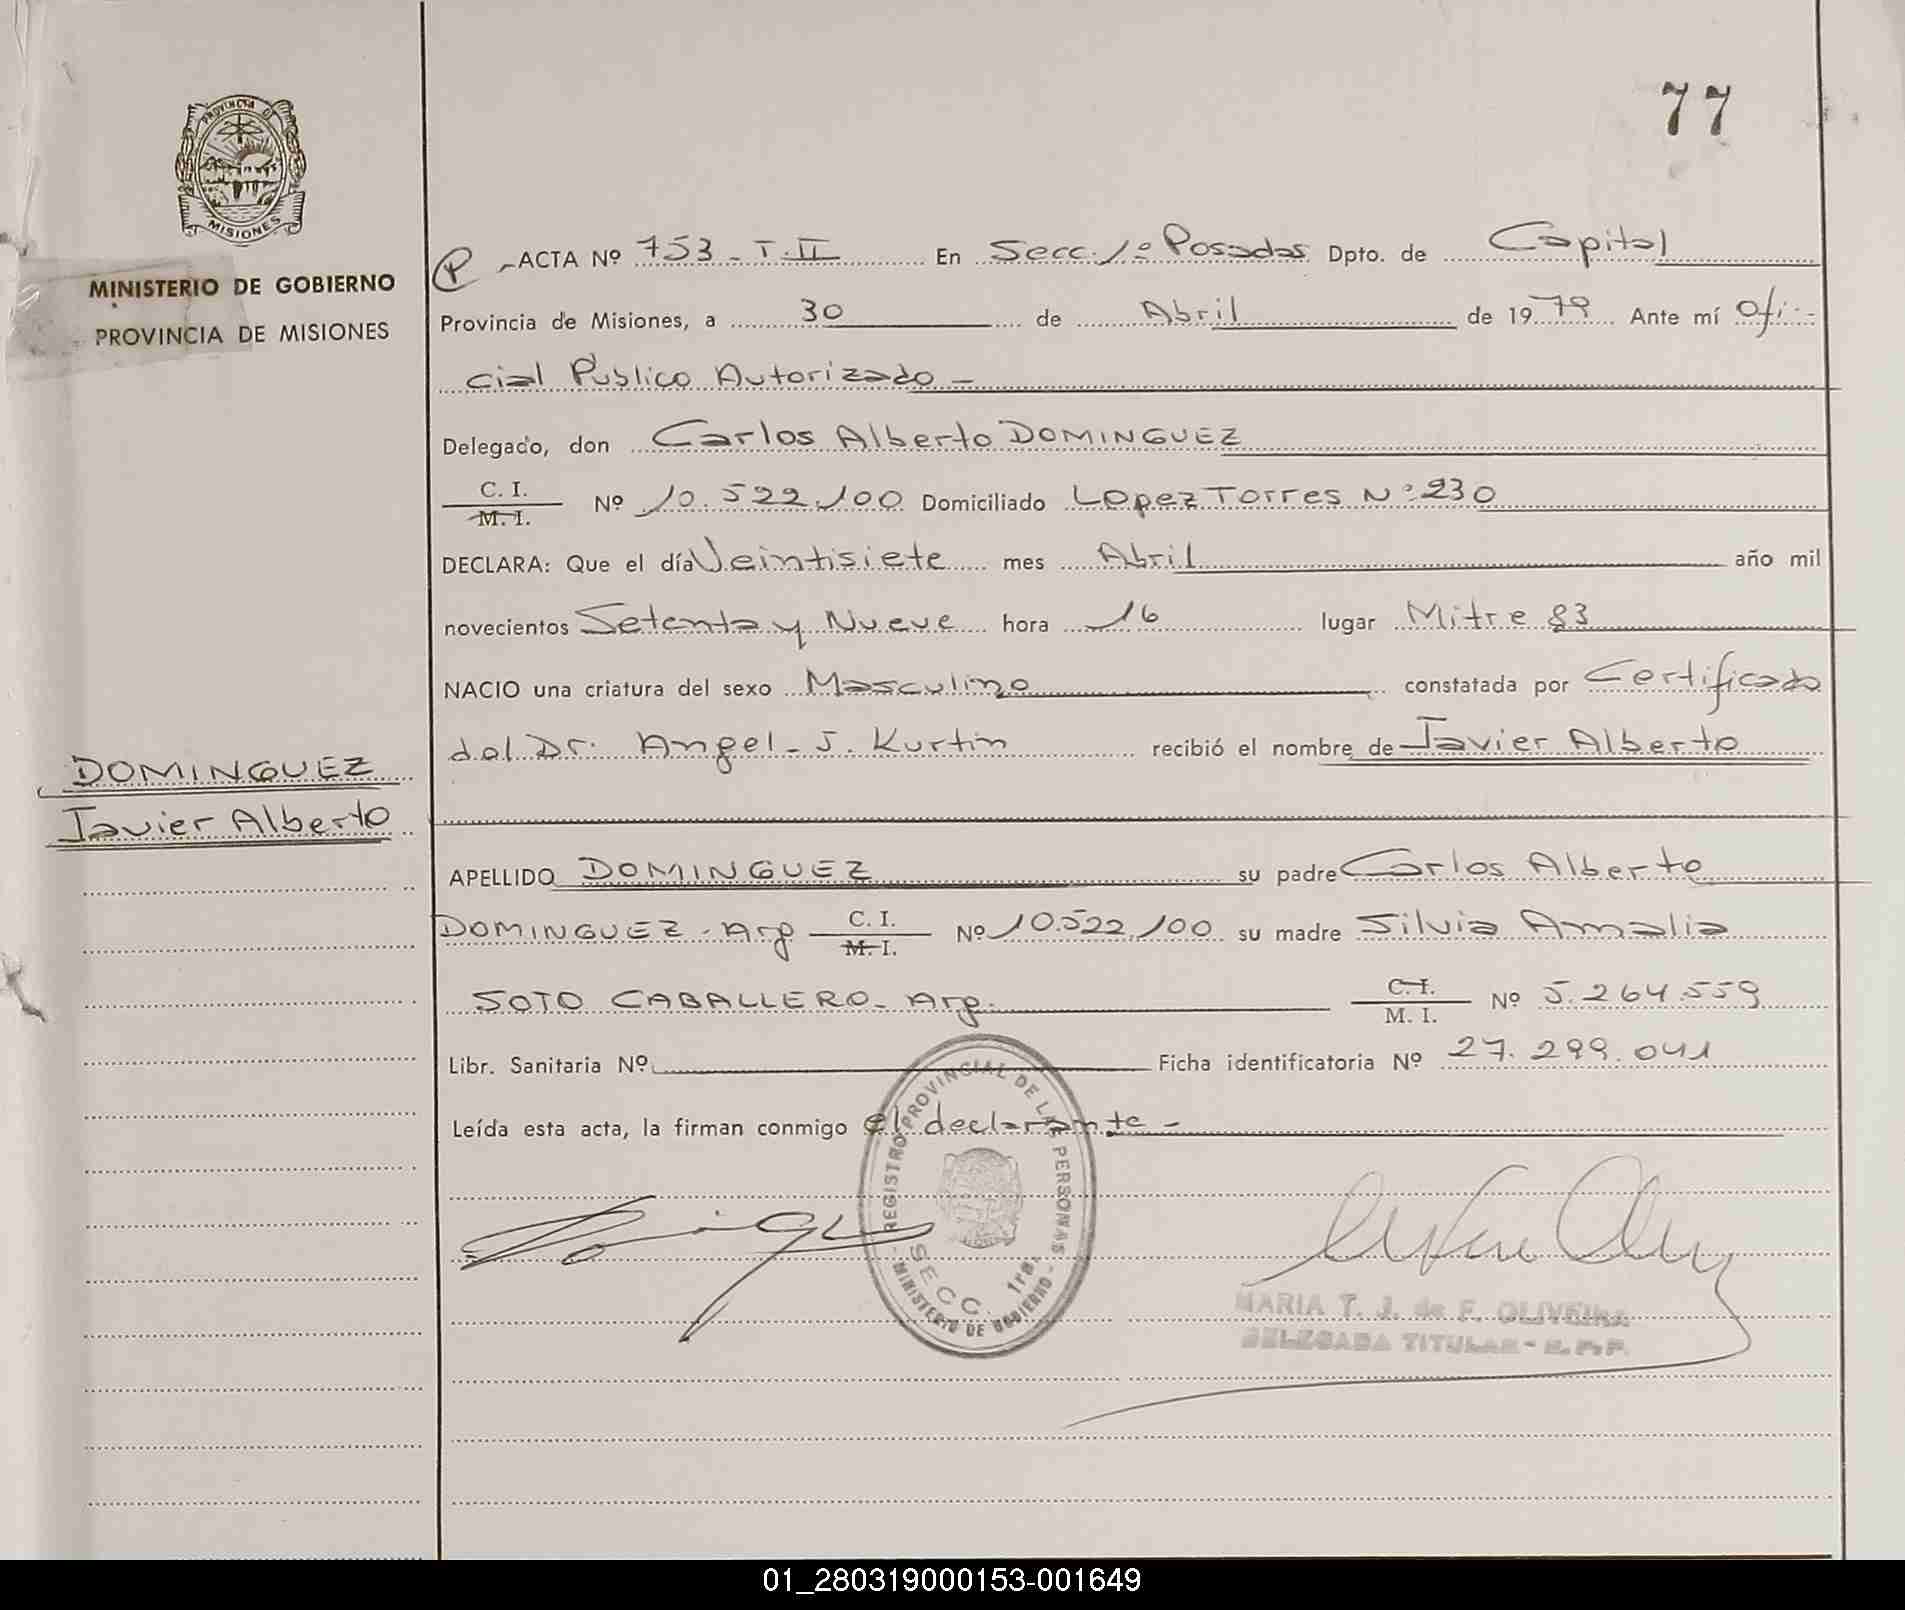 77
PROVINCIA DE
MISIONES
MINISTERIO DE GOBIERNO
PROVINCIA DE MISIONES
P ACTA Nº 753 - T. II En Secc. 1º Posadas Dpto. de Capital
Provincia de Misiones, a 30 de Abril de 1979 Ante mí Ofi-
cial Publico Autorizado -
Delegado, don Carlos Alberto DOMINGUEZ
C. I.
M. I. Nº 10.522.100 Domiciliado Lopez Torres Nº 230
DECLARA: Que el día Veintisiete mes Abril año mil
novecientos Setenta y Nueve hora 16 lugar Mitre 83
NACIO una criatura del sexo Masculino constatada por Certificado
del Dr. Angel - J. Kurtin recibió el nombre de Javier Alberto
DOMINGUEZ
Javier Alberto
APELLIDO DOMINGUEZ su padre Carlos Alberto
DOMINGUEZ - Arg C. I.
M. I. Nº 10.522.100 su madre Silvia Amalia
SOTO CABALLERO - Arg. C. I.
M. I. Nº 5.264.559
Libr. Sanitaria Nº Ficha identificatoria Nº 27.299.041
Leída esta acta, la firman conmigo el declarante -
REGISTRO PROVINCIAL DE LAS PERSONAS
SECC. 1ra.
MINISTERIO DE GOBIERNO
MARIA T. J. de F. OLIVEIRA
DELEGADA TITULAR - R. P. P.
01_280319000153-001649